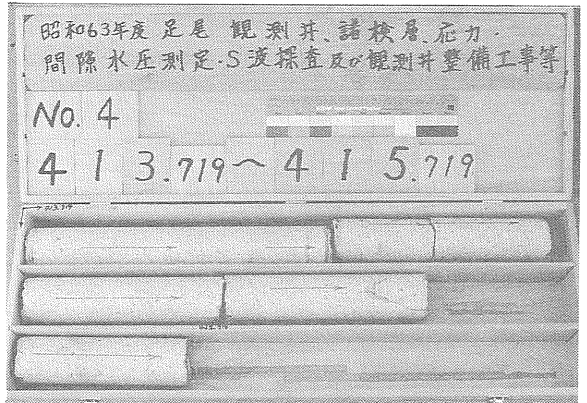 昭和63年度 足尾 観測井、諸検層、応力・
間隙水圧測定・S波探査及び観測井整備工事等
No. 4
413.719～415.719